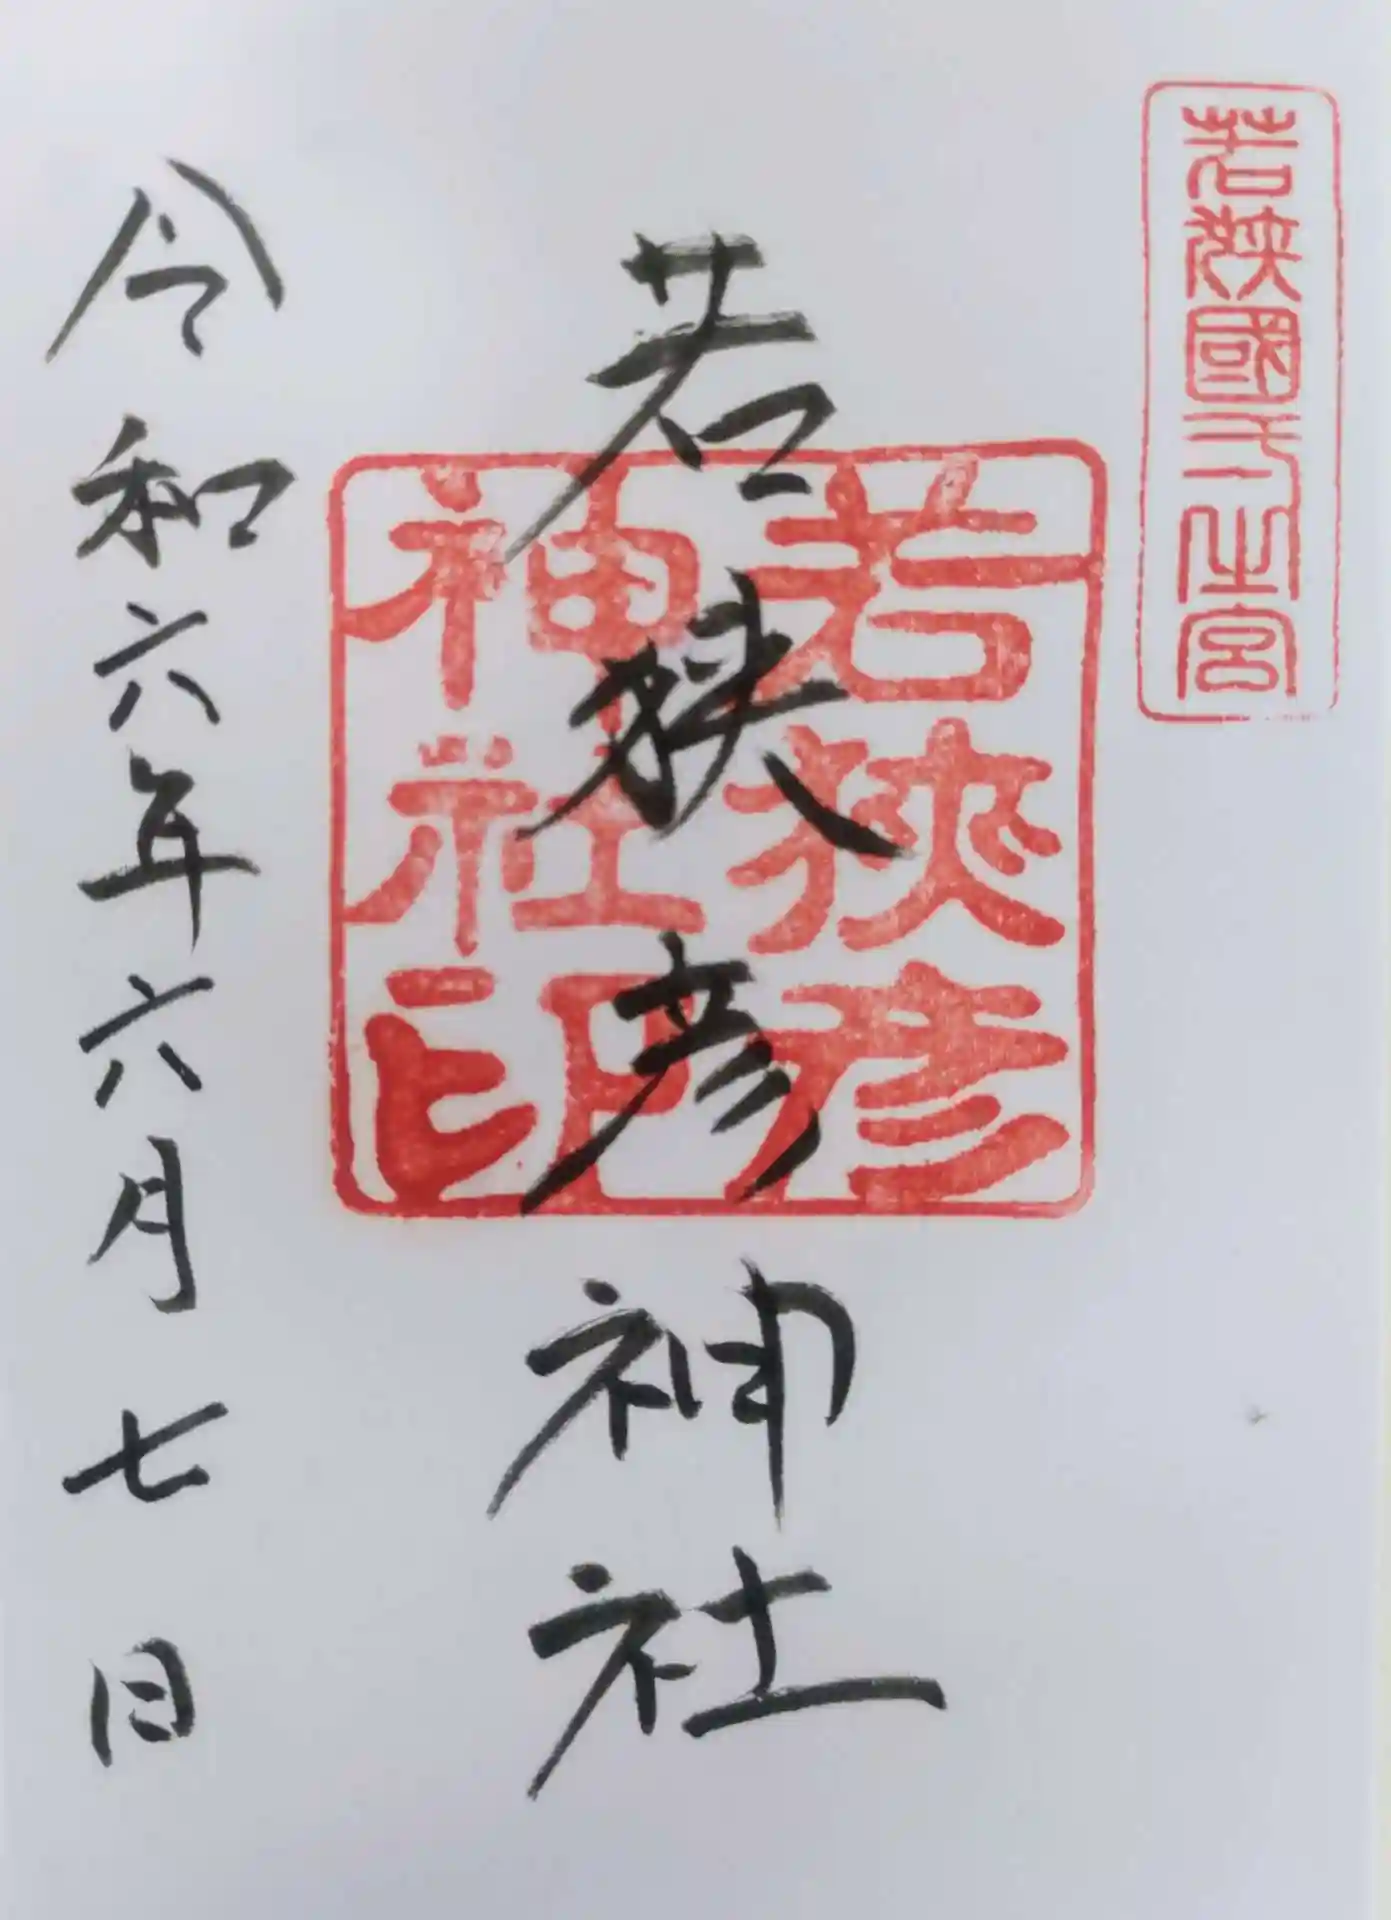 若狹國一之宮
若狭彦神社
若狹彦
神社印
令和六年六月七日